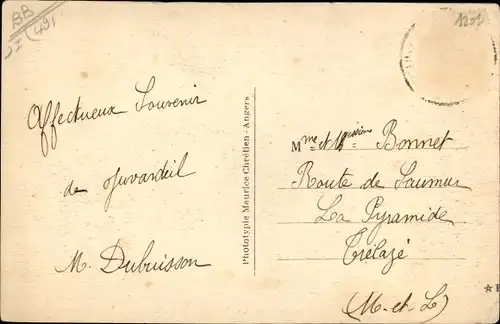 BB
(49)
1201
Affectueux Souvenir
de Juvardeil
M. Dubuisson
Phototypie Maurice Chrétien - Angers
Mme et Monsieur Bonnet
Route de Saumur
La Pyramide
Trélazé
(M-et-L)